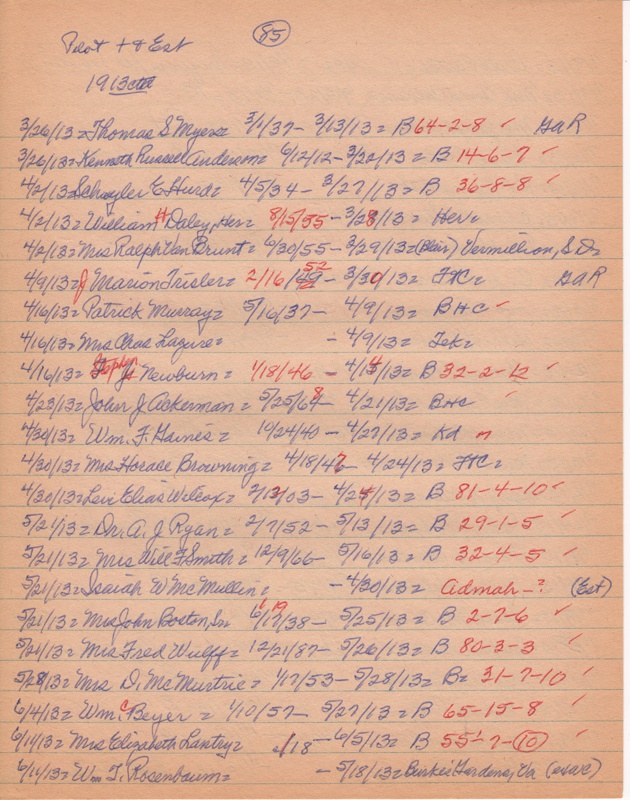 85
Pilot + & Est
1913 ctd
3/26/13 = Thomas S Myers = 3/1/37 - 3/13/13 = B 64-2-8 ✓ GAR
3/26/13 = Kenneth Russell Anderson = 6/12/12 - 3/22/13 = B 14-6-7 ✓
4/2/13 = Schuyler E Hurd = 4/5/34 - 3/27/13 = B 36-8-8 ✓
4/2/13 = William H Daley, Her = 8/15/55 - 3/28/13 = Her =
4/2/13 = Mrs Ralph Van Brunt = 6/30/55 - 3/29/13 = (Blair) Vermillion, S D =
4/9/13 = J Marion Trisler = 2/16/52 - 3/30/13 = FtC = GAR
4/16/13 = Patrick Murray = 5/16/37 - 4/9/13 = BHC ✓
4/16/13 = Mrs Chas Lagure = - 4/9/13 = Tek =
4/16/13 = Newburn = 1/18/46 - 4/14/13 = B 32-2-12 ✓
4/23/13 = John J Ackerman = 5/25/68 - 4/21/13 = BHC ✓
4/30/13 = Wm. F. Gaines = 10/24/40 - 4/27/13 = Kd
4/30/13 = Mrs Horace Browning = 4/18/47 - 4/24/13 = FtC =
4/30/13 = Levi Elias Wilcox = 2/13/03 - 4/24/13 = B 81-4-10 ✓
5/21/13 = Dr. A. J Ryan = 2/7/52 - 5/13/13 = B 29-1-5 ✓
5/21/13 = Mrs Will F Smith = 12/9/66 - 5/16/13 = B 32-4-5 ✓
5/21/13 = Isaiah W McMullin = - 4/30/13 = Admah - ? (Est)
5/21/13 = Mrs John Boston, Sr 6/19/38 - 5/25/13 = B 2-7-6 ✓
5/21/13 = Mrs Fred Wulff = 12/21/87 - 5/26/13 = B 80-3-3 ✓
5/28/13 = Mrs D. McMurtrie = 1/17/53 - 5/28/13 = B = 31-7-10 ✓
6/4/13 = Wm. C Beyer = 1/10/57 - 5/27/13 = B 65-15-8 ✓
6/11/13 = Mrs Elizabeth Lantry = /18 - 6/5/13 = B 55-7-10 ✓
6/11/13 = Wm T. Rosenbaum = - 5/18/13 = Burkes Gardens, Va